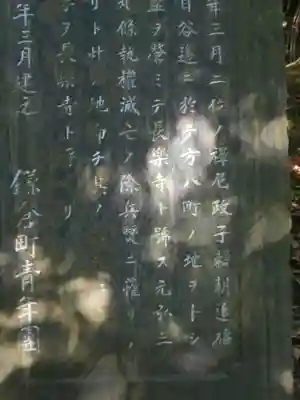 年三月二位ノ禪尼政子賴朝追福
目谷邉ニ於テ方八町ノ地ヲトシ
堂ヲ營ミテ長樂寺ト號ス元弘三
北條執權滅亡ノ際兵燹ニ罹リ
リト此ノ地卽チ其ノ
ヲ長樂寺ト
年三月建之
鎌倉町青年團